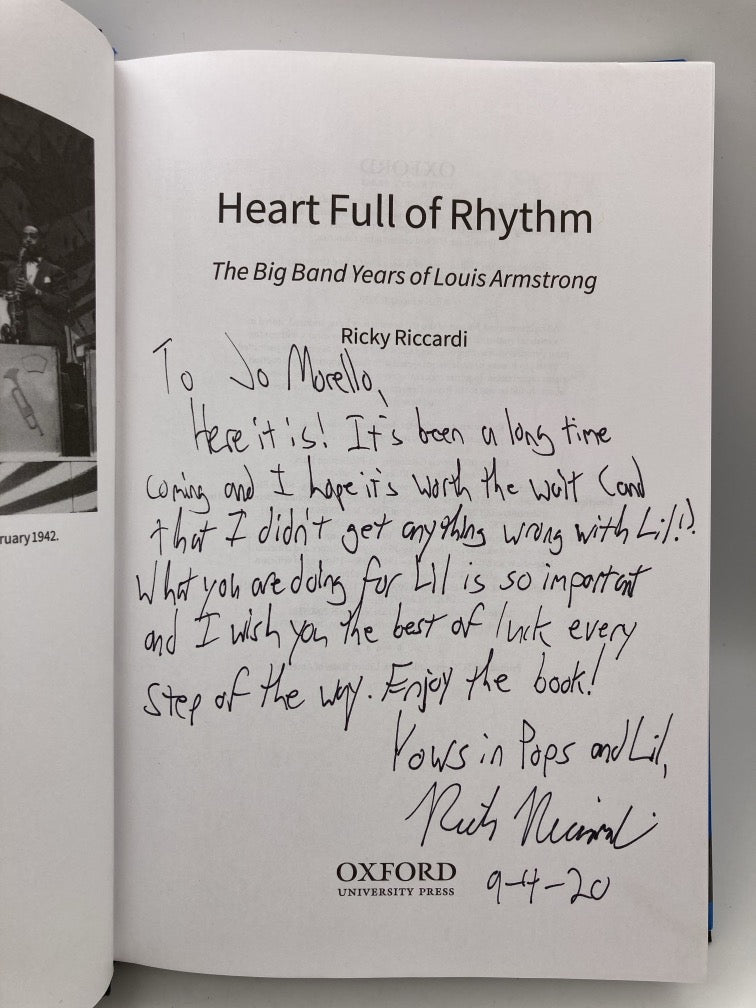 Heart Full of Rhythm
The Big Band Years of Louis Armstrong
Ricky Riccardi
To Jo Morello,
Here it is! It's been a long time
coming and I hope it's worth the wait (and
that I didn't get anything wrong with Lil!).
What you are doing for Lil is so important
and I wish you the best of luck every
step of the way. Enjoy the book!
Yours in Pops and Lil,
Ricky Riccardi
OXFORD
UNIVERSITY PRESS
9-4-20
ruary 1942.
OXFORD